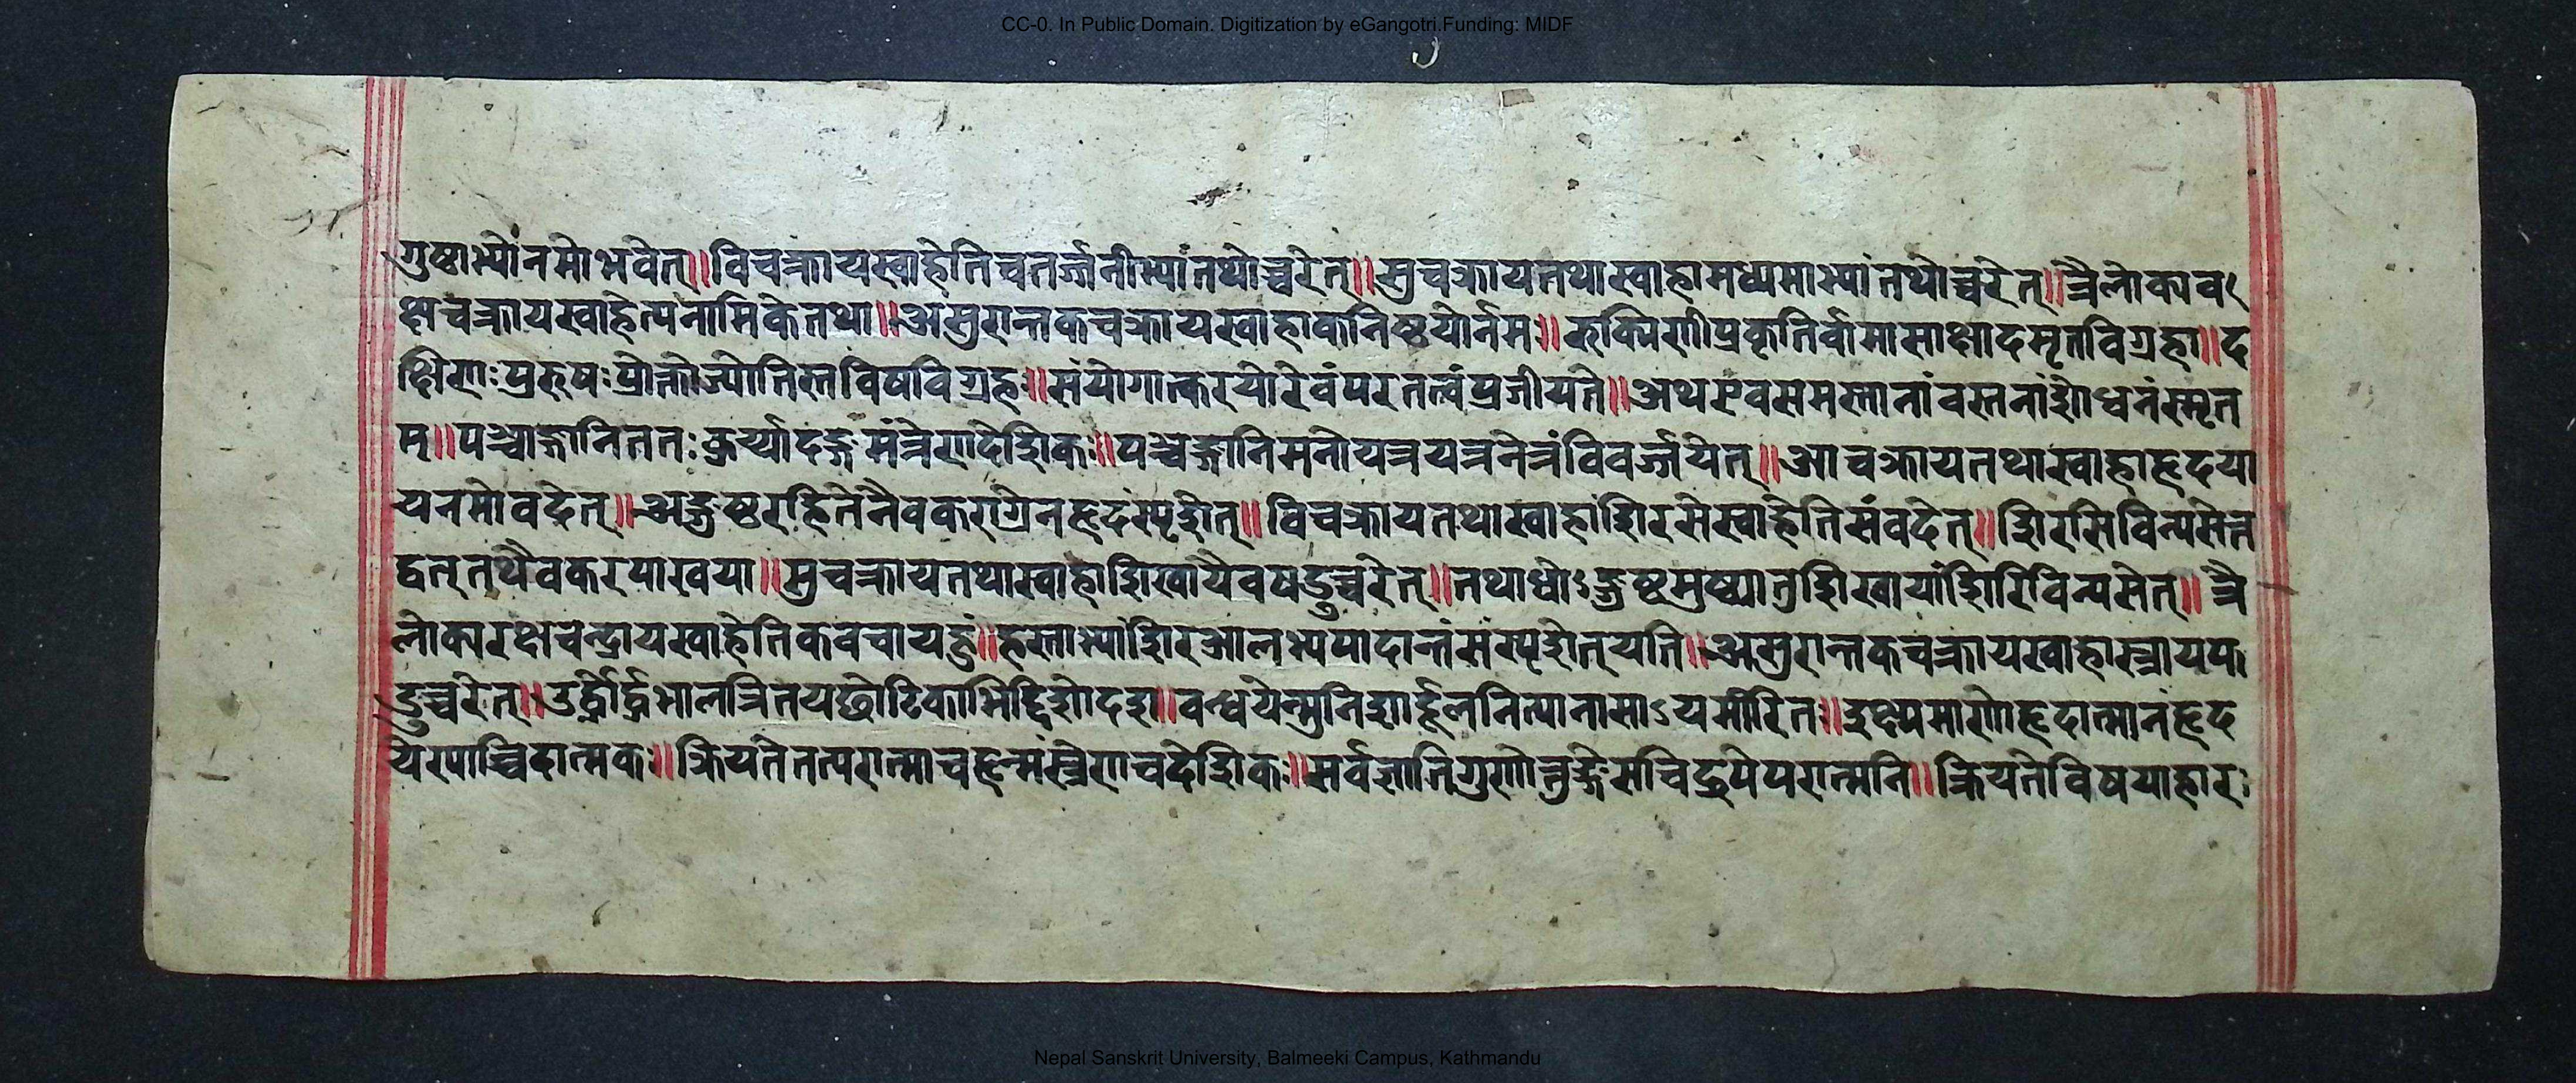 CC-0. In Public Domain. Digitization by eGangotri.Funding: MIDF
गुष्टाभ्यांनमोभवेत्॥विचक्रायस्वाहेतिचतर्ज्जनीभ्यांतथोच्चरेत्॥सुचक्रायतथास्वाहामध्यमाभ्यांतथोच्चरेत्॥त्रैलोक्यव
क्षाचक्रायस्वाहेत्यनामिकेतथा॥असुरान्तकचक्रायस्वाहाकनिष्ठयोर्नमः॥रुक्मिणीप्रकृतिर्वामासाक्षादमृतविग्रहा॥द
क्षिणःपुरुषःप्रोक्तोज्योतिस्तविषविग्रहः॥संयोगात्करयोरेवंपरतत्वंप्रजीयते॥अथएवसमस्तानांवस्तनांशोधनंस्मृत
म्॥पञ्चाङ्गानिततःकुर्य्यादङ्गमंत्रेणदेशिकः॥पञ्चेङ्गानिमनोयत्रयत्रनेत्रंविवर्ज्जयेत्॥आचक्रायतथास्वाहाहृदया
यनमोवदेत्॥अङ्गुष्ठरहितेनैवकराग्रेनहृदंस्पृशेत्॥विचक्रायतथास्वाहांशिरसेस्वाहेतिसंवदेत्॥शिरसिविन्यसेत्त
द्वत्तथैवकरयाखया॥सुचक्रायतथास्वाहाशिखायैवषडुच्चरेत्॥तथाधोऽङ्गुष्ठमुष्ट्यातुशिखायांशिरिविन्यसेत्॥त्रै
लोक्यरक्षाचेन्द्रायस्वाहेतिकवचायहुं॥हस्ताभ्यांशिरआलभ्यपादान्तंसंस्पृशेत्यति॥असुरान्तकचक्रायस्वाहास्त्रायफ
डुच्चरेत्॥उर्द्ध्वोर्द्ध्वभालत्रितयछोटिकाभिद्दिशोदश॥बन्धयेन्मुनिशार्दूलनित्यानासाऽयमीरितः॥इष्टप्यमाणोहृदात्मानंहृद
येस्याच्चिदात्मकः॥क्रियतेतत्परात्माचहृन्मंत्रेणचदेशिकः॥सर्वज्ञातिगुणोत्तुङ्गेसचिद्रुपेपरात्मनि॥क्रियतेविषयाहारः
Nepal Sanskrit University, Balmeeki Campus, Kathmandu